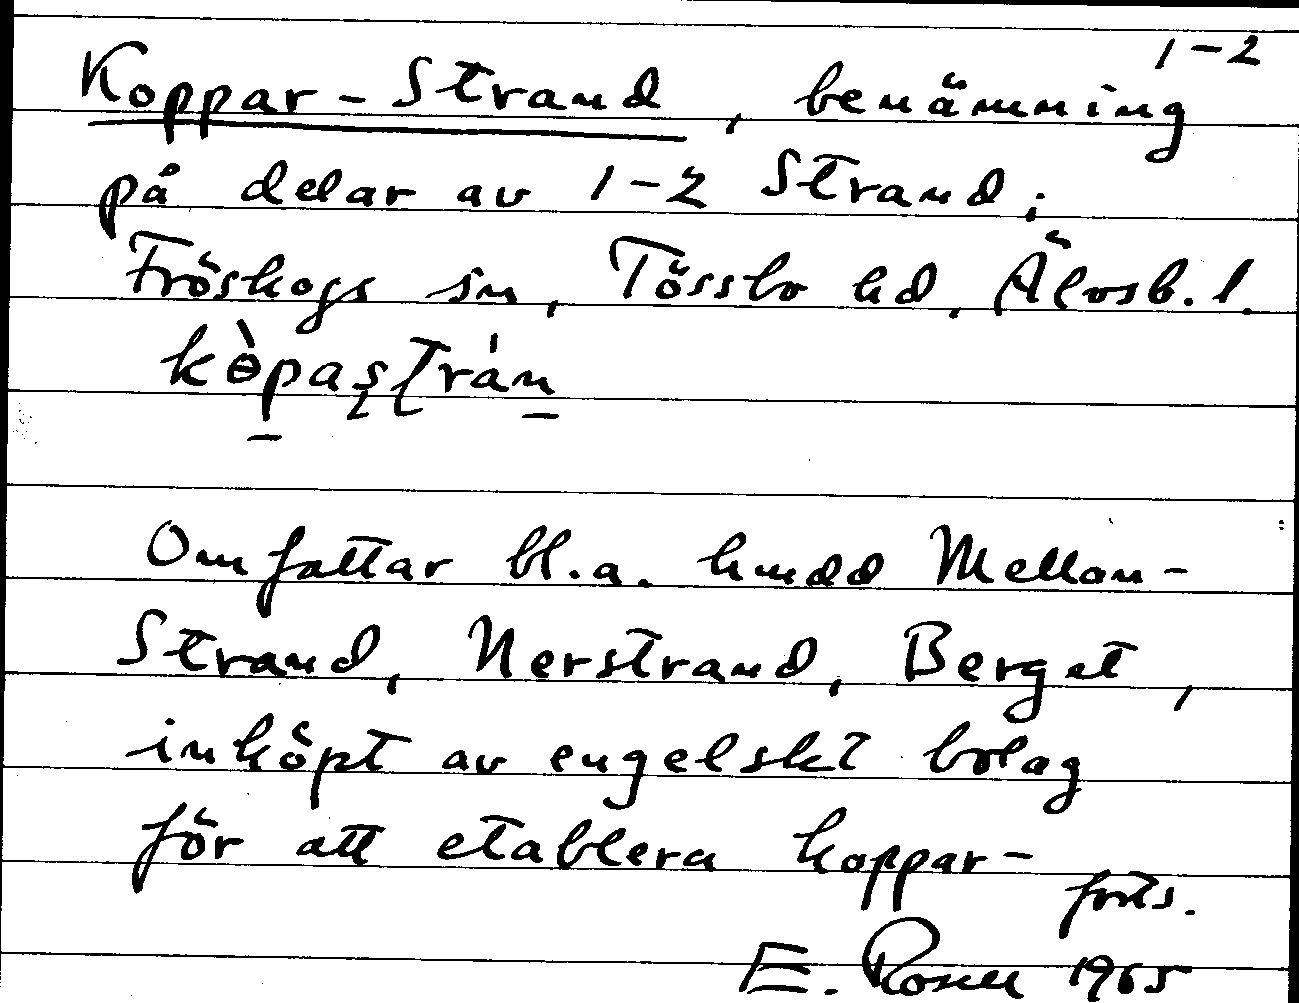 1-2
Koppar-Strand, benämning
på delar av 1-2 Strand;
Fröskogs sn, Tössbo hd, Älvsb. l.
Omfattar bl.a. hmdd Mellan-
Strand, Nerstrand, Berget,
inköpt av engelskt bolag
för att etablera koppar-
forts.
E. Rosell 1965